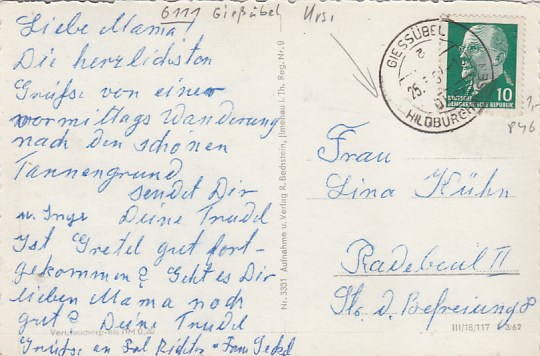 6111 Gießübel Urs.
Liebe Mama!
Die herzlichsten
Grüße von einer
vormittags Wanderung
nach den schönen
Tannengrund
sendet Dir
u. Inge Deine Trudel
Ist Gretel gut fort-
gekommen? Geht es Dir
lieben Mama noch
gut? Deine Trudel
Grüße an Sal Richter
Verbraucherpreis DM 0,20
Nr. 3331 Aufnahme u. Verlag R. Bechstein, Ilmenau i. Th. Reg. Nr. 9
GIESSÜBEL
HILDBURGH
10
DEUTSCHE
DEMOKRATISCHE REPUBLIK
Frau
Lina Kühn
Radebeul II
Str. d. Befreiung 8
III/18/117 3/62